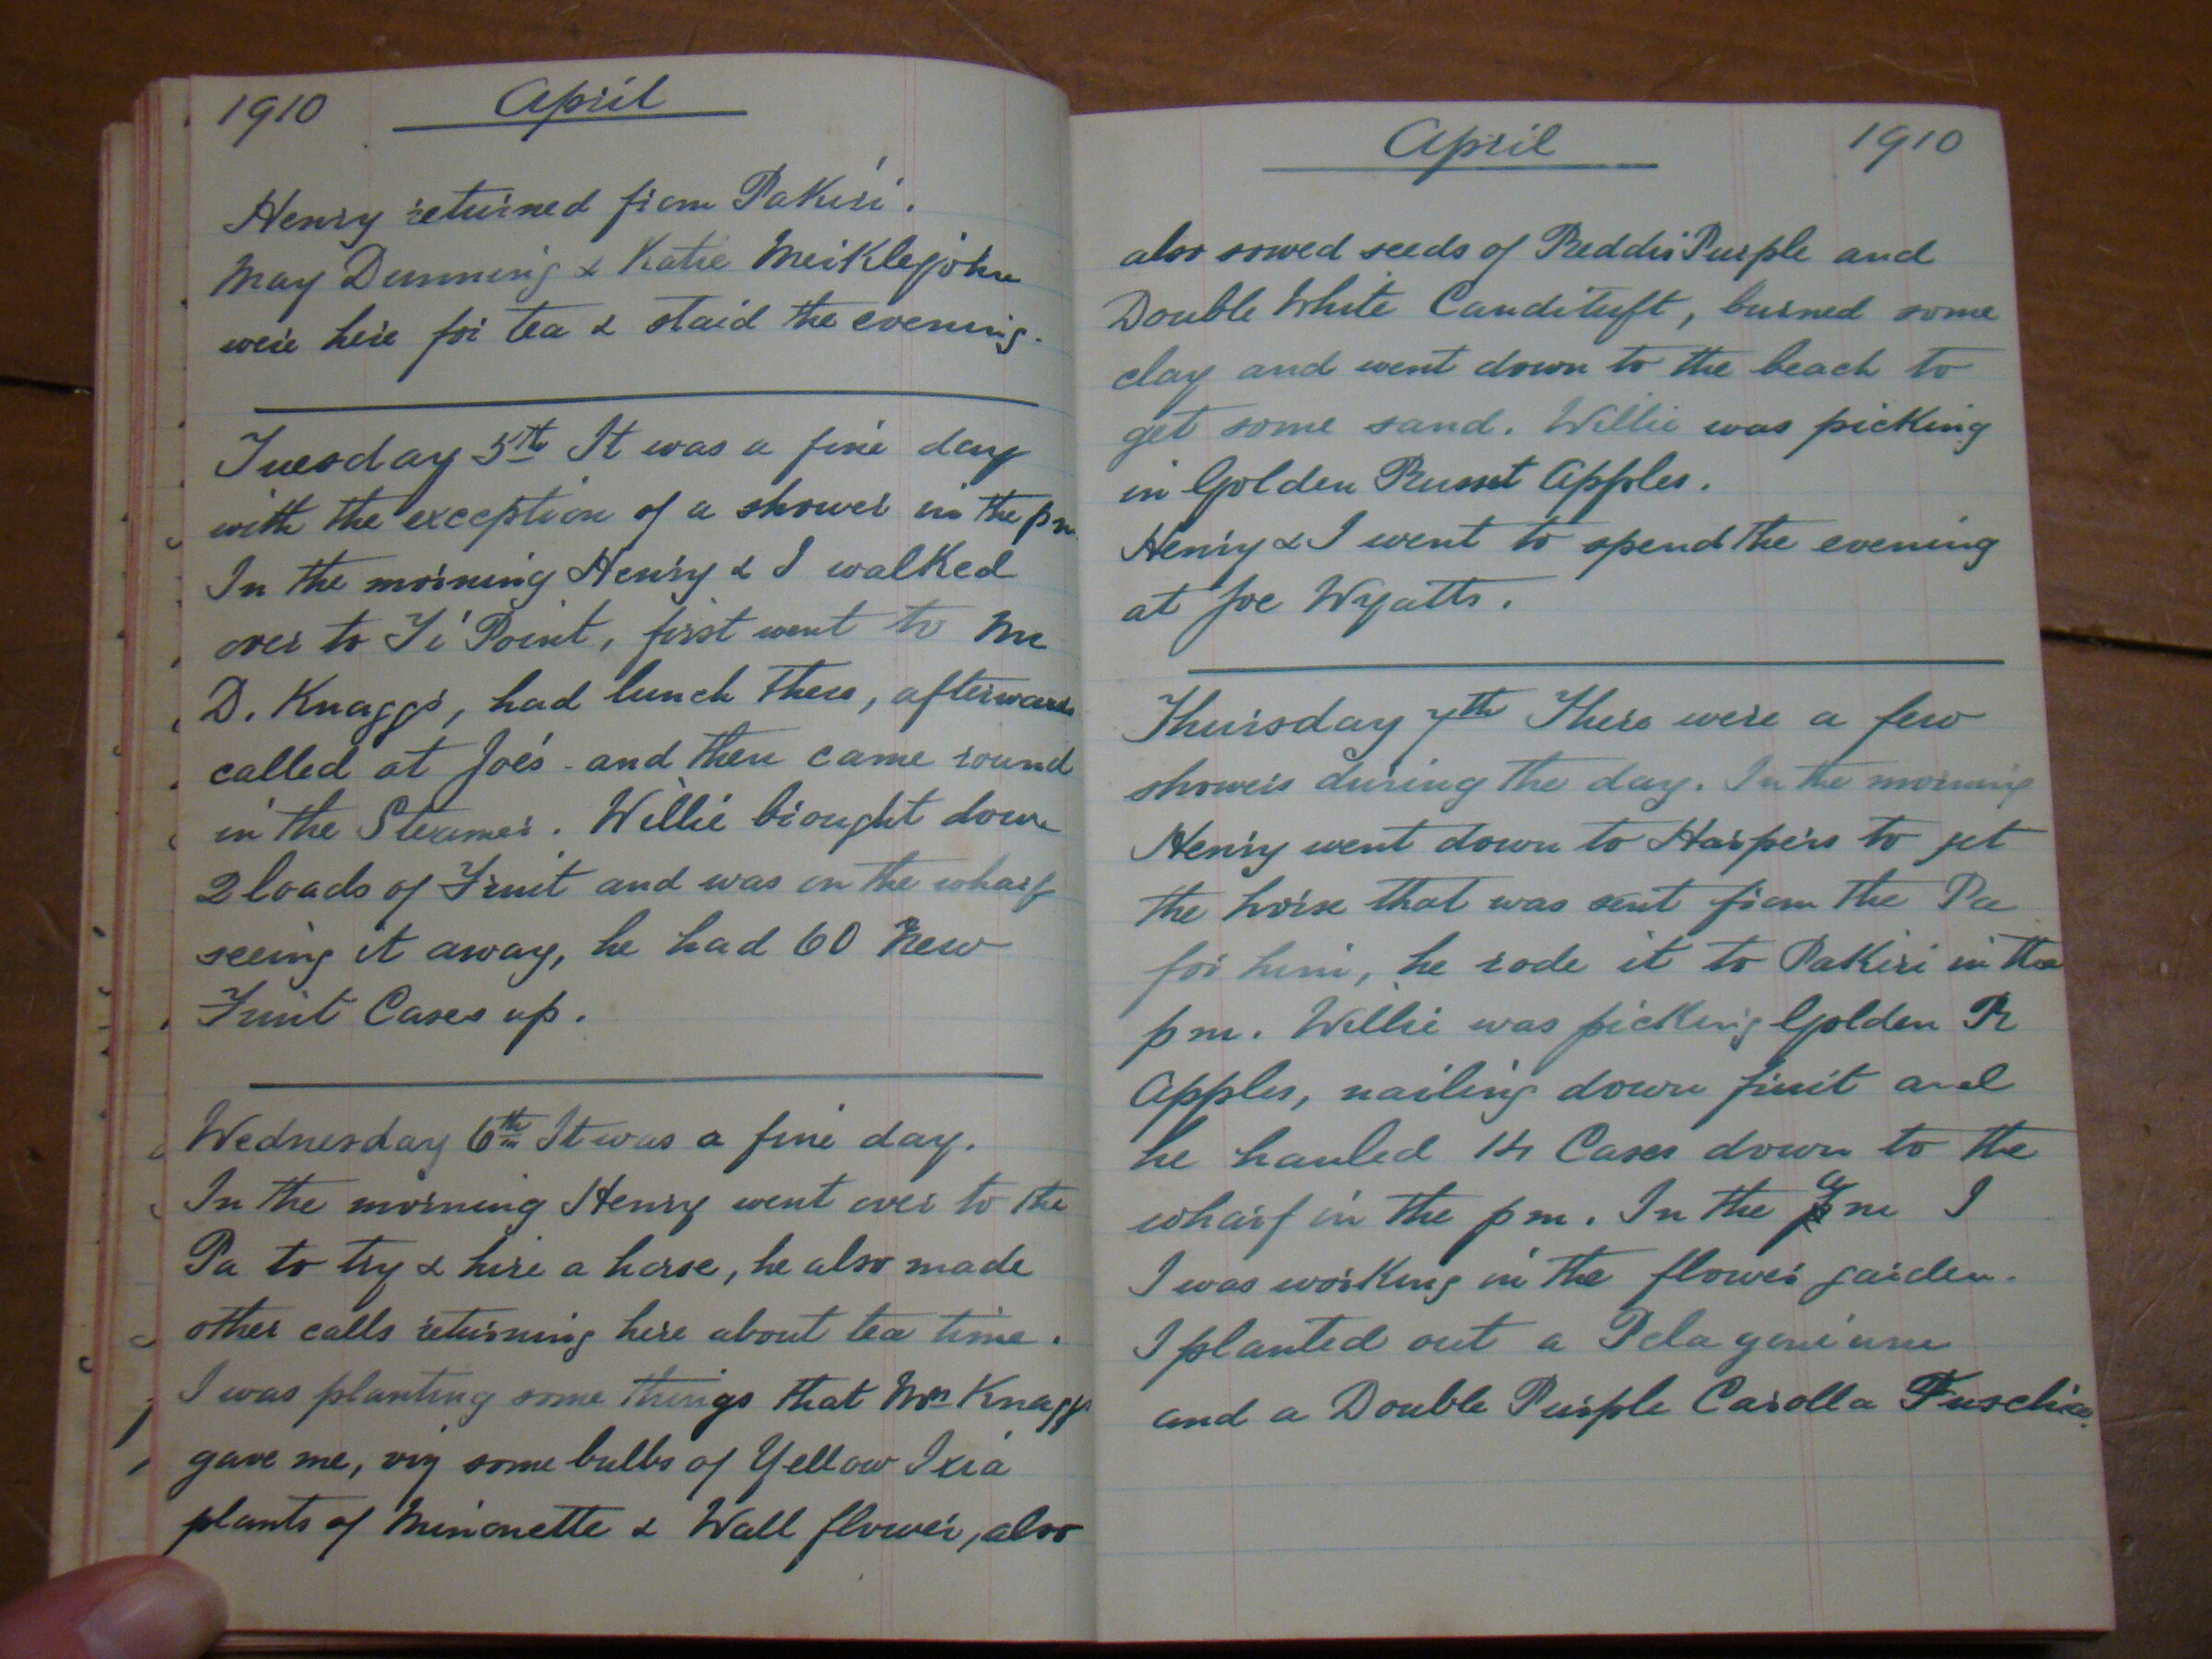 1910 April
Henry returned from Pakiri.
May Dunning & Katie Meiklejohn
were here for tea & staid the evening.
Tuesday 5th It was a fine day
with the exception of a shower in the pm
In the morning Henry & I walked
over to Ti Point, first went to Mr
D. Knaggs, had lunch there, afterwards
called at Joe's and then came round
in the Steamer. Willie brought down
2 loads of Fruit and was on the wharf
seeing it away, he had 60 New
Fruit Cases up.
Wednesday 6th It was a fine day.
In the morning Henry went over to the
Pa to try & hire a horse, he also made
other calls returning here about tea time.
I was planting some things that Mrs Knaggs
gave me, viz some bulbs of Yellow Ixia
plants of Minonette & Wall flower, also
April 1910
also sowed seeds of Reddis Purple and
Double White Candituft, burned some
clay and went down to the beach to
get some sand. Willie was picking
in Golden Russet Apples.
Henry & I went to spend the evening
at Joe Wyatts.
Thursday 7th There were a few
showers during the day. In the morning
Henry went down to Harpers to get
the horse that was sent from the Pa
for him, he rode it to Pakiri in the
pm. Willie was picking Golden R
Apples, nailing down fruit and
he hauled 14 Cases down to the
wharf in the pm. In the am I
I was working in the flower garden.
I planted out a Pelagonium
and a Double Purple Carolla Fuschia.